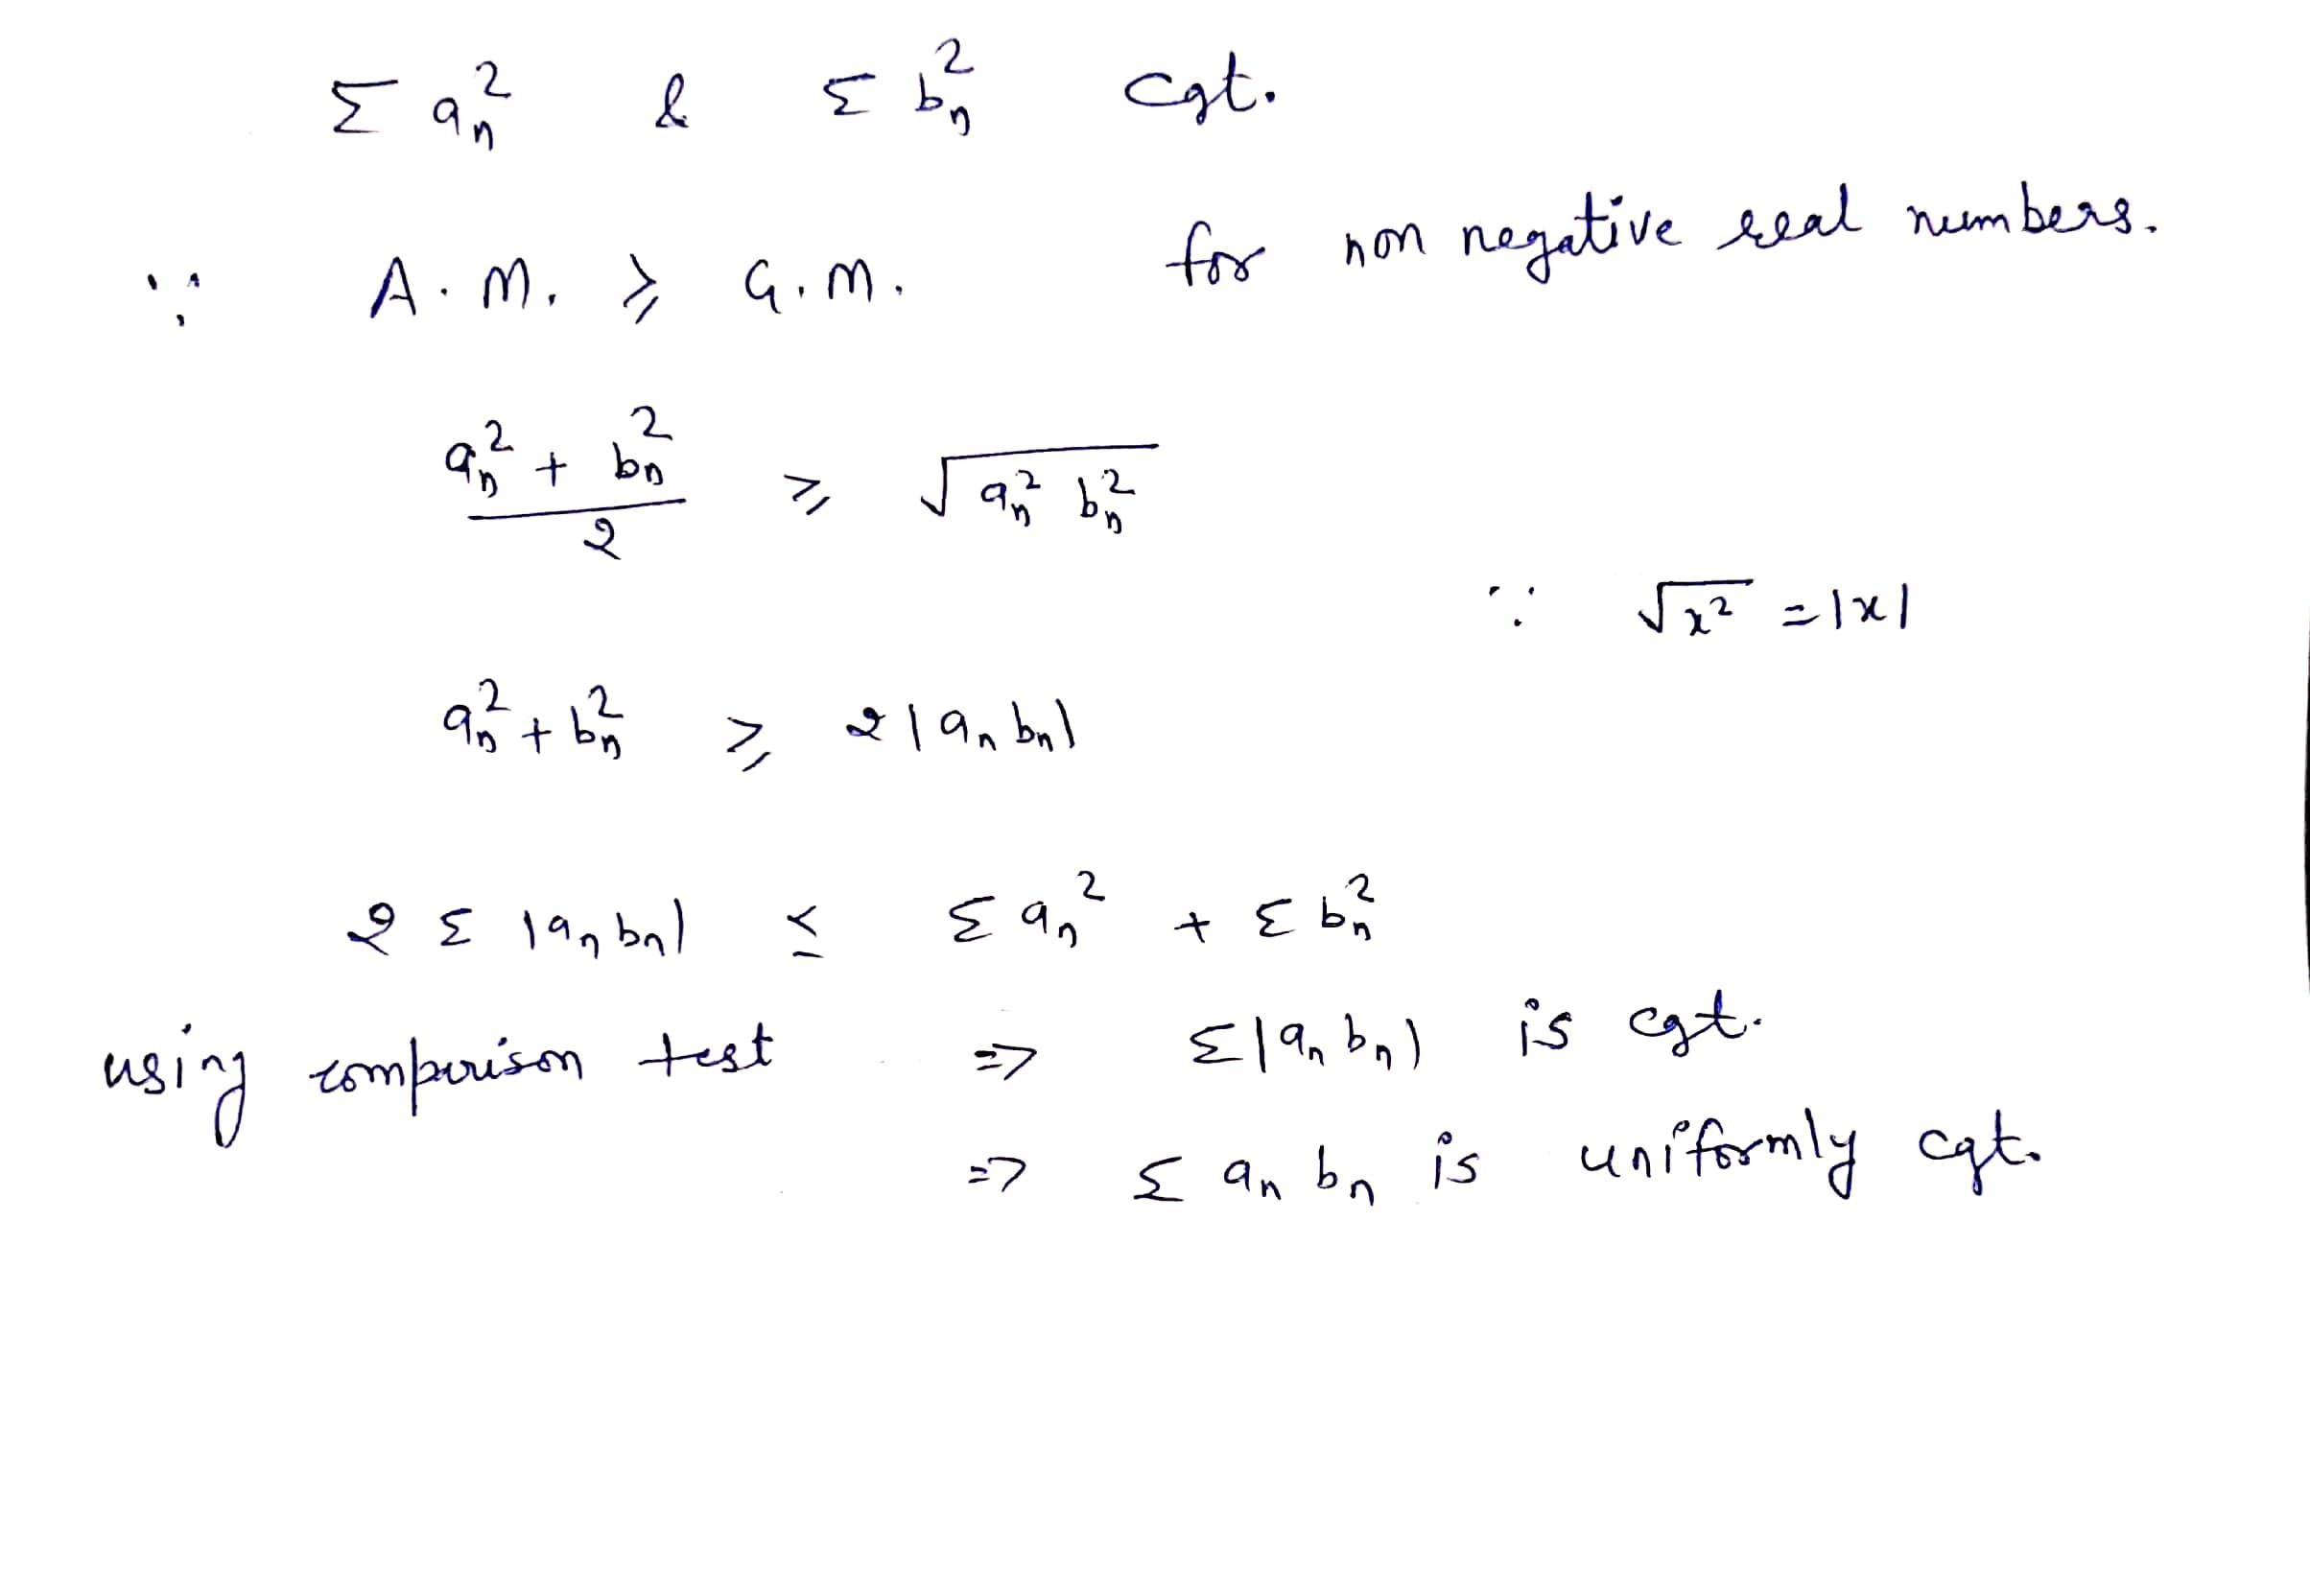 Σ aₙ² & Σ bₙ² cgt.
∵ A.M. ≥ G.M. for non negative real numbers.
(aₙ² + bₙ²)/2 ≥ √(aₙ² bₙ²)
∵ √x² = |x|
aₙ² + bₙ² ≥ 2|aₙ bₙ|
2 Σ |aₙ bₙ| ≤ Σ aₙ² + Σ bₙ²
using comparison test ⇒ Σ|aₙ bₙ| is cgt.
⇒ Σ aₙ bₙ is uniformly cgt.